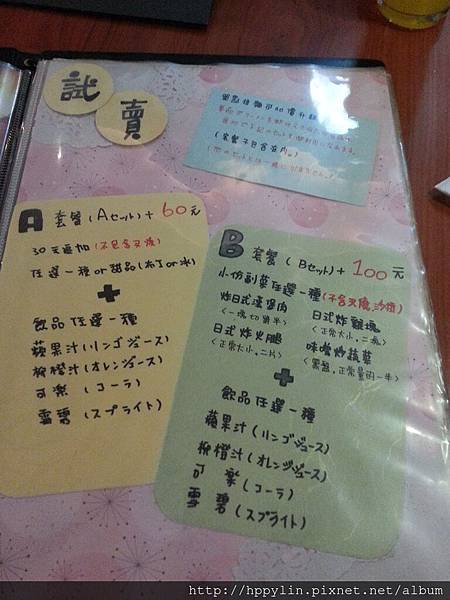 試
賣
(套餐不包含在內。)
A 套餐(Aセット)+60元
任選一種or甜品(布丁or冰)
+
飲品任選一種
蘋果汁(リンゴジュース)
柳橙汁(オレンジジュース)
可樂(コーラ)
雪碧(スプライト)
B 套餐(Bセット)+100元
小份副菜任選一種(不含叉燒,沙拉)
炸日式漢堡肉
<一塊切兩半>
日式炸雞塊
<正常大小,二塊>
日式炸火腿
<正常大小,二片>
味噌炒蔬菜
+
飲品任選一種
蘋果汁(リンゴジュース)
柳橙汁(オレンジジュース)
可樂(コーラ)
雪碧(スプライト)
http://hppylin.pixnet.net/album